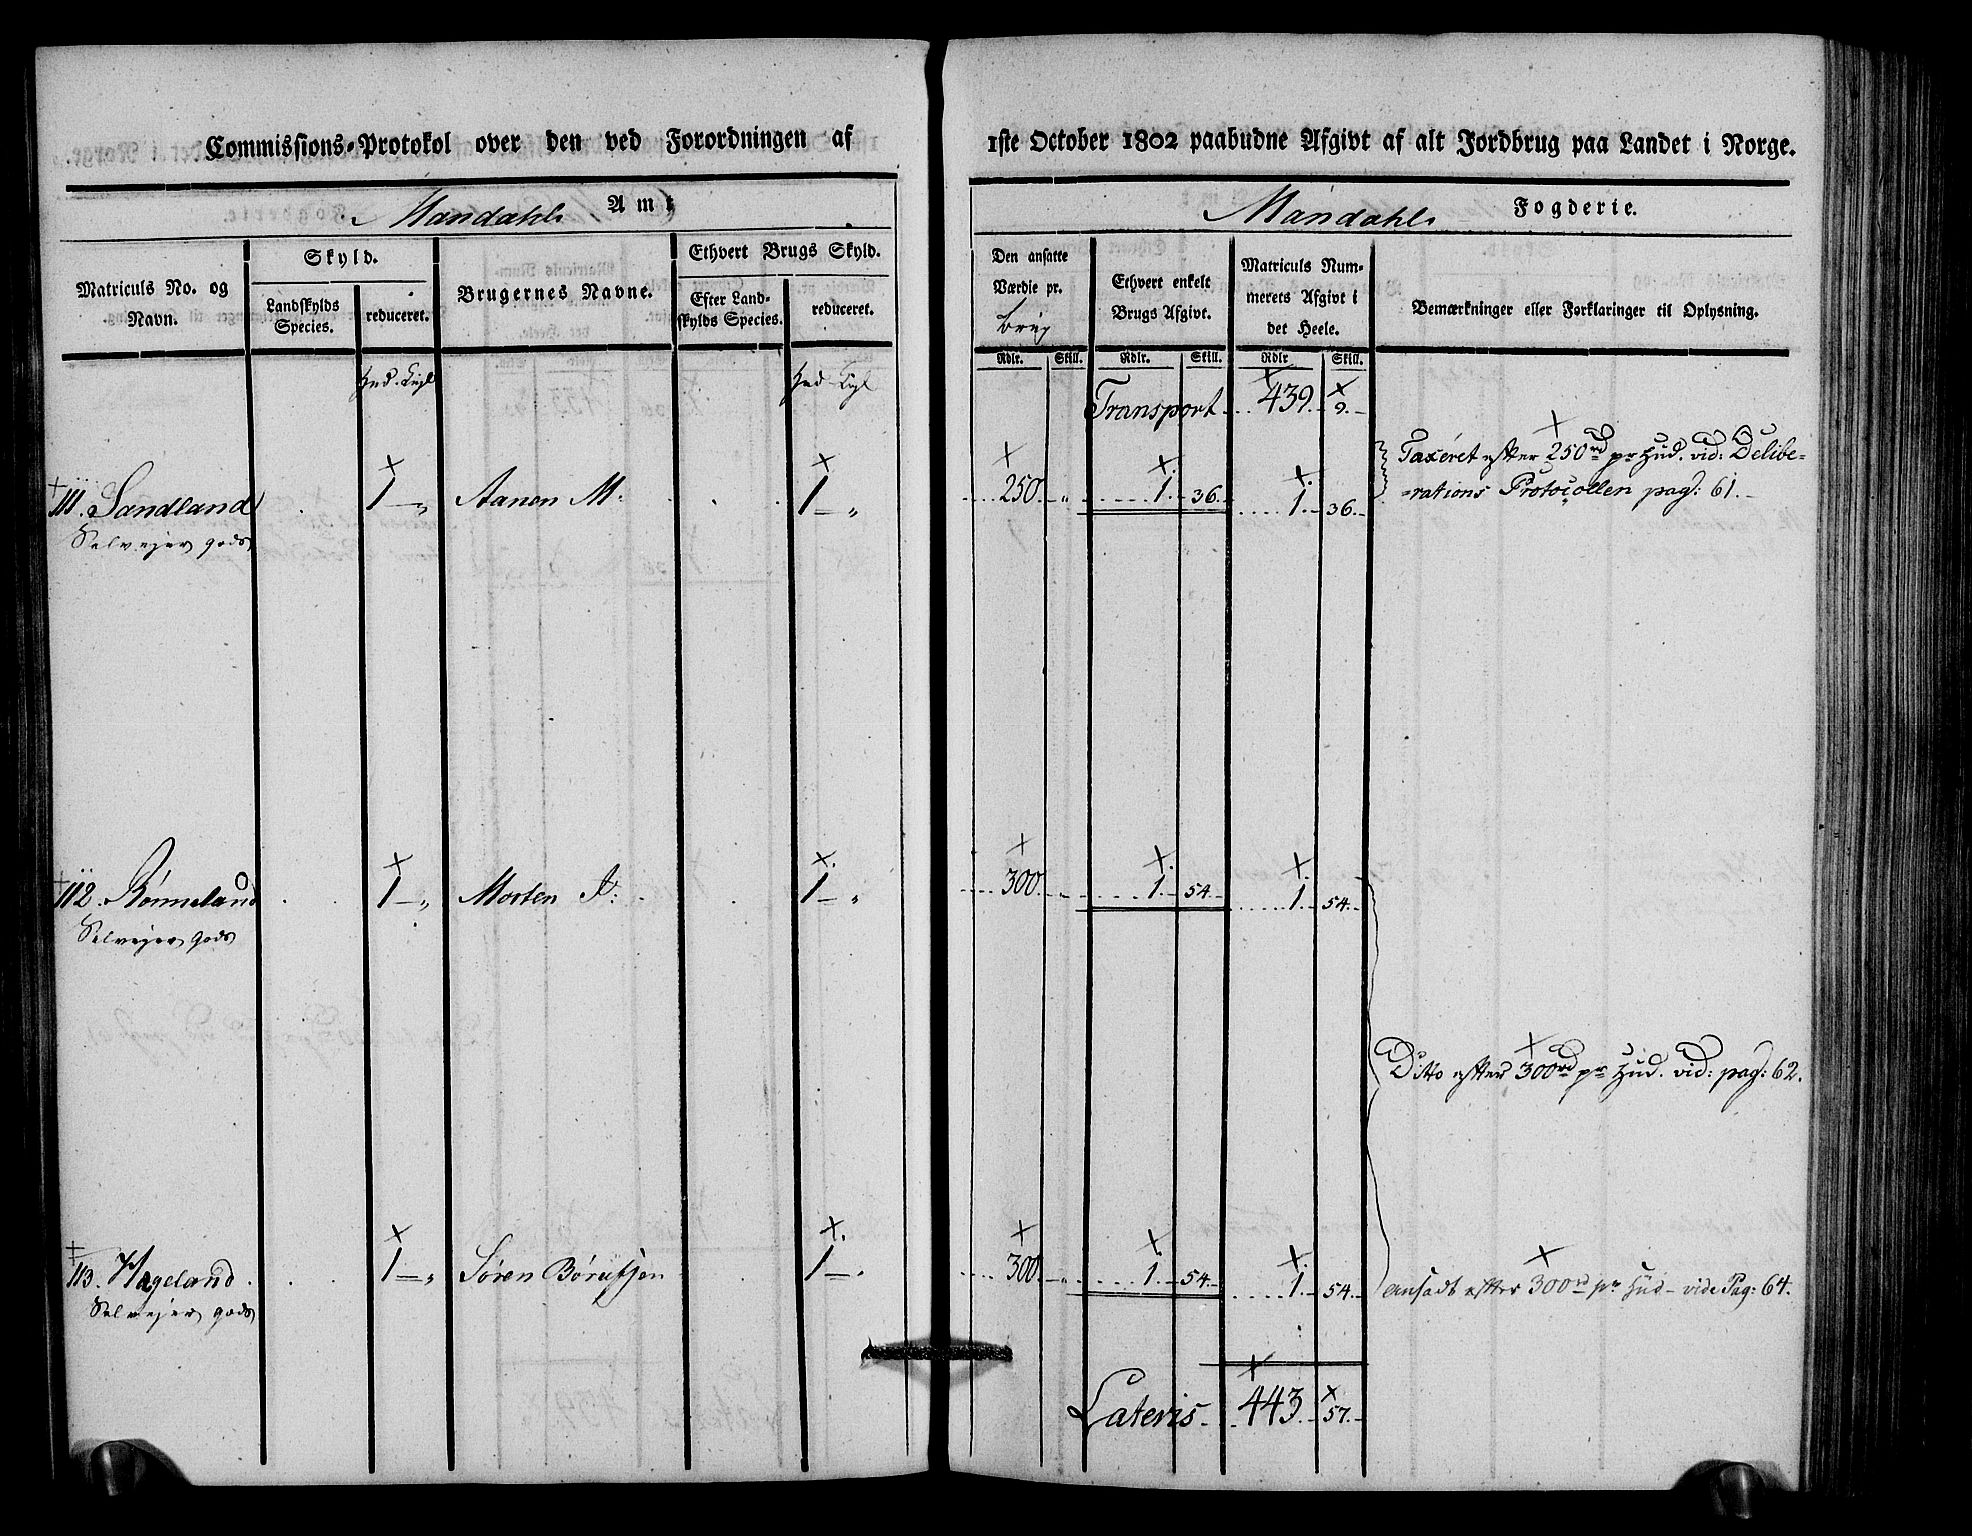 Commissions-Protokol over den ved Forordningen af 1ste October 1802 paabudne Afgivt af alt Jordbrug paa Landet i Norge.
Mandahls Amt
Mandahls Fogderie.
Matriculs No. og Navn.
Skyld.
Landskylds Species.
reduceret.
Brugernes Navne.
Ethvert Brugs Skyld.
Efter Landskylds Species.
reduceret.
Den ansatte Værdie pr. brug
Ethvert enkelt Brugs Afgivt.
Matriculs Nummerets Afgivt i det Heele.
Bemærkninger eller Forklaringer til Oplysning.
Rdlr. Skill. Rdlr. Skill. Rdlr Skill.
Hud. Kugl
Hud Kugl
Transport 439. 9.
111. Sandland 1 „ Aanon M: 1 „ 250. „ 1. 36. 1. 36.
Selvejer gods
Taxeret efter 250rd pr Hud. vid: Delibe=
=rations Protocollen pag: 61.
112. Rønneland 1 „ Morten A: 1 „ 300. 1. 54. 1. 54.
Selvejer gods
Ditto efter 300rd pr Hud. vid: pag: 62.
113. Hageland 1 „ Søren 1 300. „ 1. 54. 1. 54.
Selvejer gods
ansadt efter 300rd pr Hud vide Pag: 64.
Lateris 443. 57.